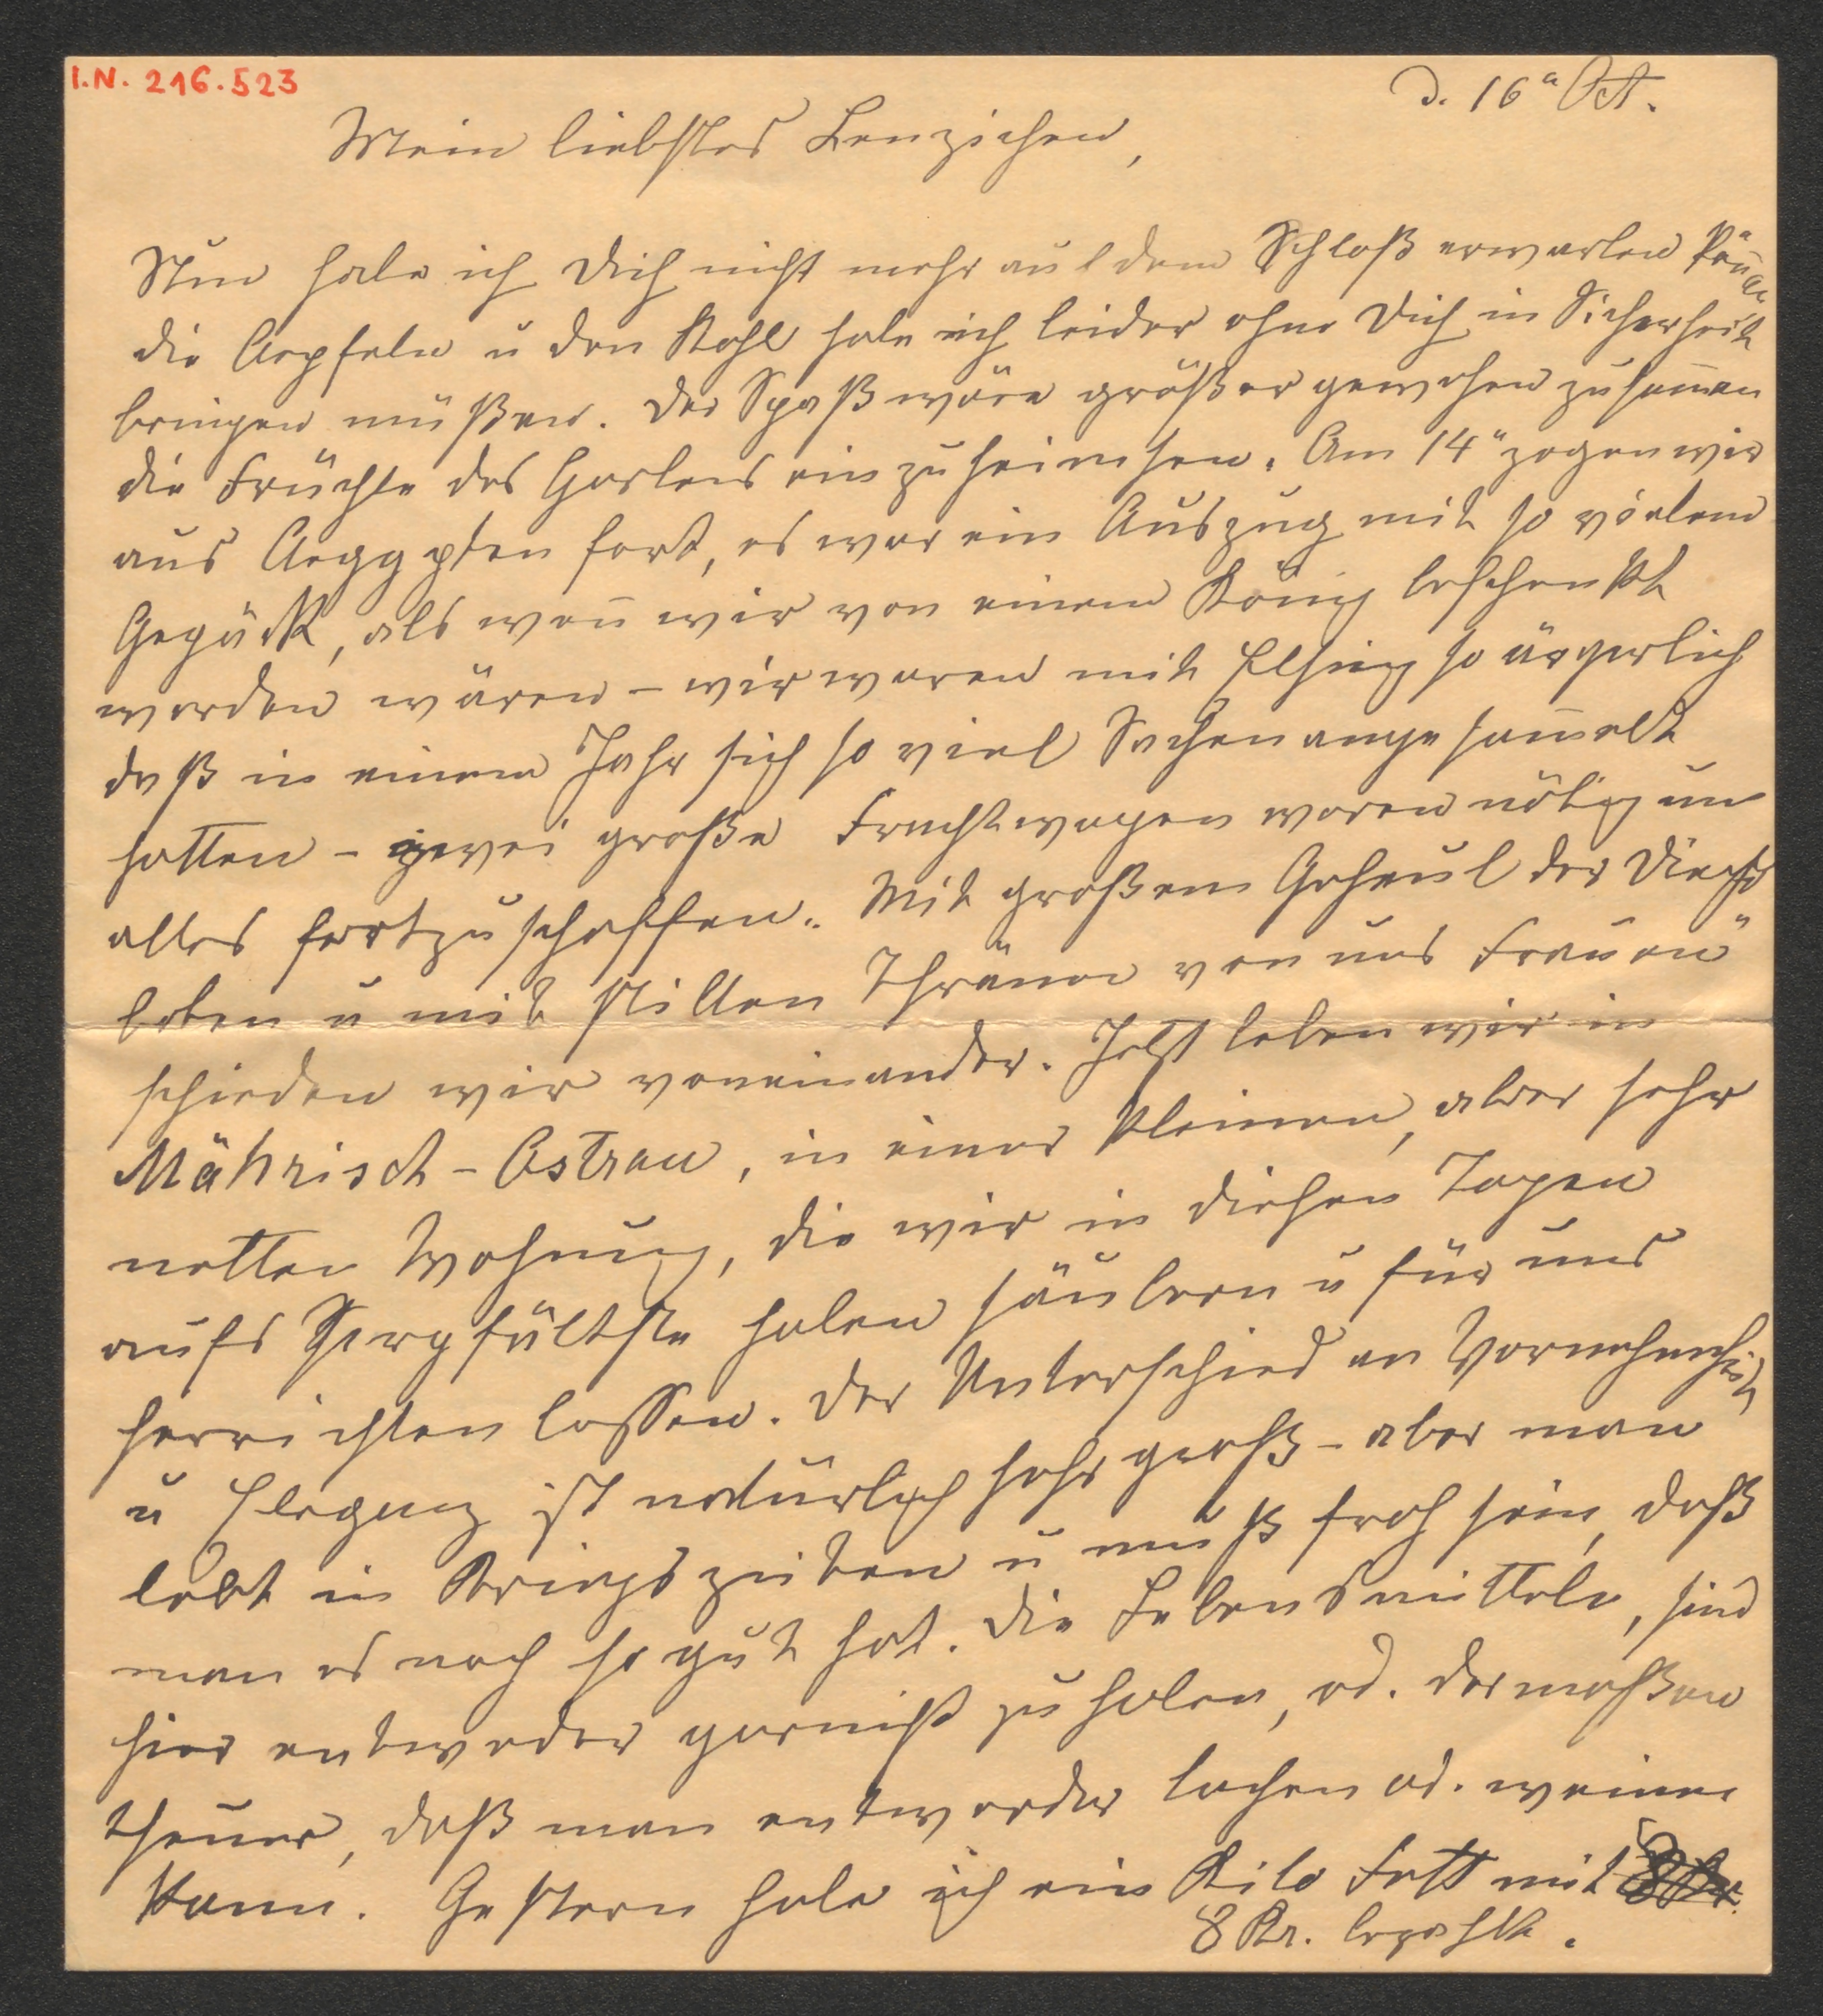 I.N. 216.523
d. 16" Okt.
Mein liebstes Lenzichen,
Nun habe ich Dich nicht mehr auf dem Schloß erwarten können
die Aepfeln u den Kohl habe ich leider ohne Dich in Sicherheit
bringen müßen. Der Spaß wäre größer gewesen zusam̅en
die Früchte des Gartens einzuheimsen. Am 14" zogen wir
aus Aegypten fort, es war ein Auszug mit so vielem
Gepäck, als wen̅ wir von einem König beschenkt
worden wären – wir waren mit Elsing so ärgerlich
daß in einem Jahr sich so viel Sachen angesam̅elt
hatten – zwei große Frachtwagen waren nötig um
alles fortzuschaffen. Mit großem Geheul der Dienst
boten u mit stillen Thränen von uns Frauen
schieden wir voneinander. Jetzt leben wir in
Mährisch-Ostrau, in einer kleinen, aber sehr
netten Wohnung, die wir in diesen Tagen
aufs Sorgfältste haben säubern u für uns
herrichten lassen. Der Unterschied an Vornehmheit
u Eleganz ist natürlich sehr groß – aber man
lebt in Kriegszeiten u muß froh sein, daß
man es noch so gut hat. Die Lebensmitteln, sind
hier entweder garnicht zu haben, od. dermaßen
theuer, daß man entweder lachen od. weinen
kann. Gestern habe ich ein Kilo Fett mit
8 Kr. bezahlt.